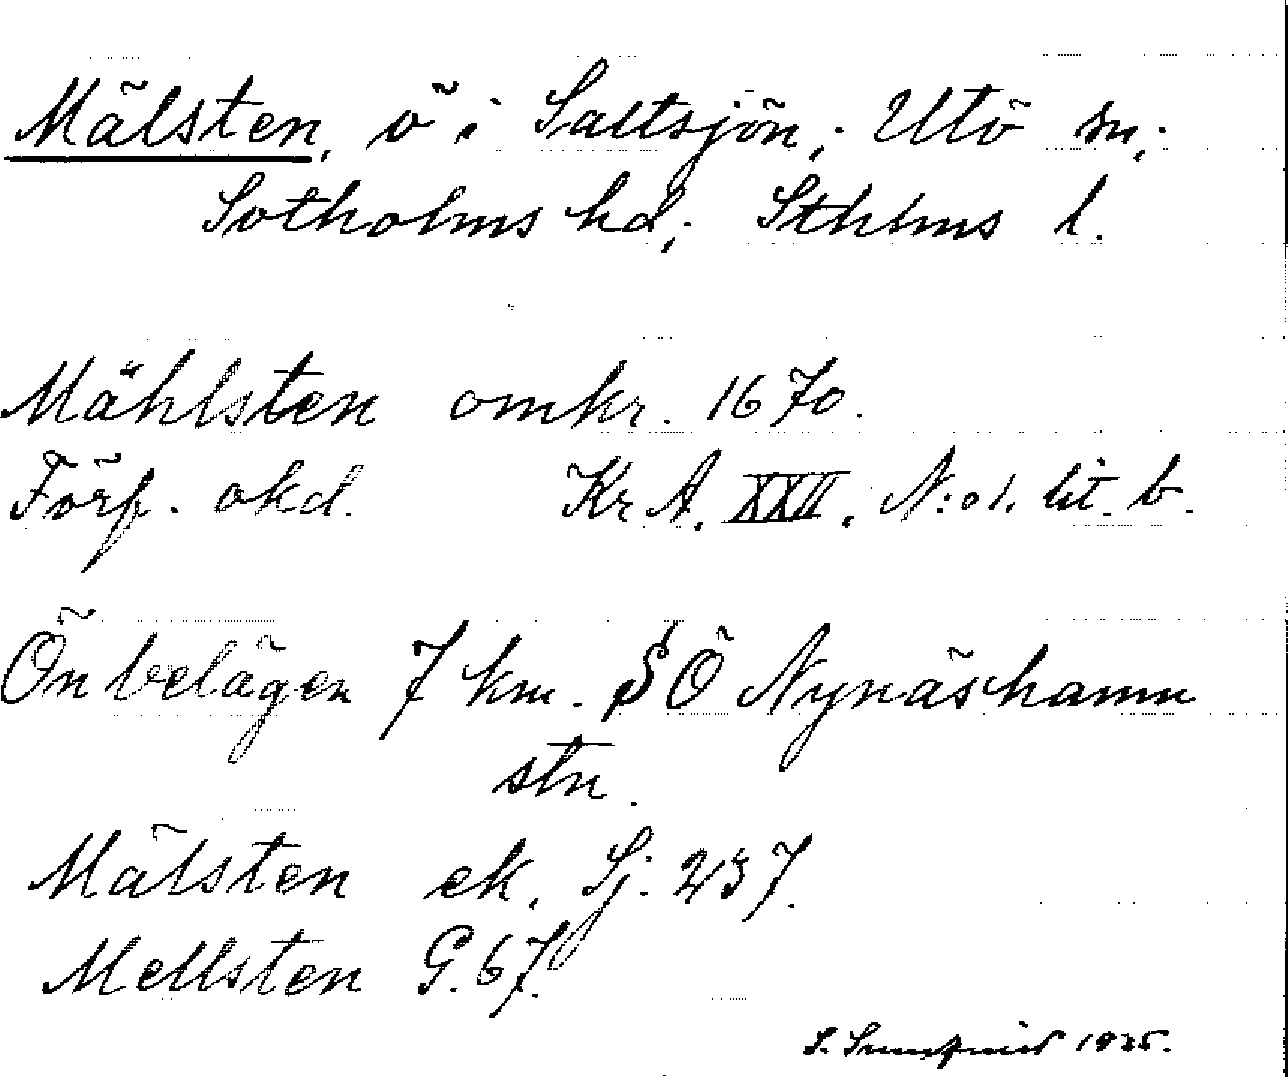 Mälsten, ö i Saltsjön; Utö sn;
Sotholms hd; Sthlms l.
Mählsten omkr. 1670.
Förf. okd. Kr A. XXII. N:o 1. lit. b.
Ön belägen 7 km. SÖ Nynäshamn
stn.
Mälsten ek. Sj. 237.
Mellsten G. 67.
S. 1925.